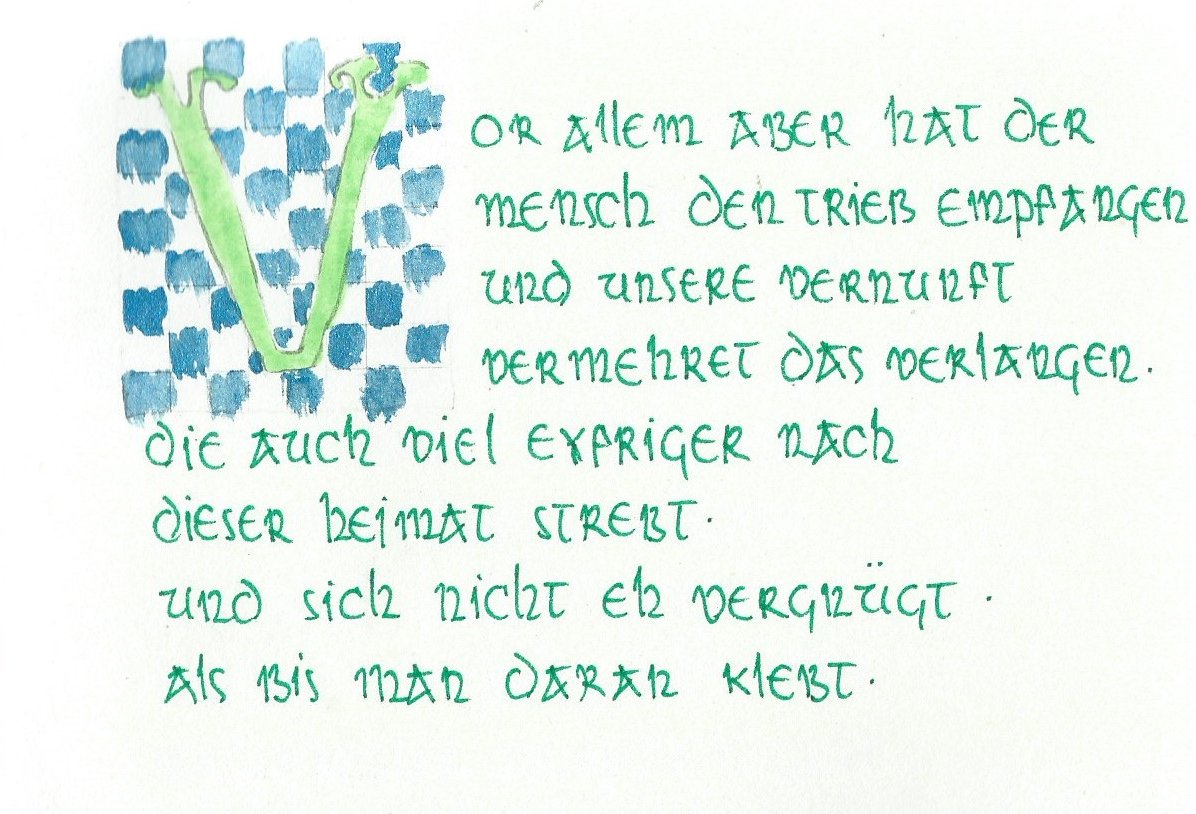 Vor allem aber hat der
mensch den trieb empfangen
und unsere vernunft
vermehret das verlangen.
die auch viel eyfriger nach
dieser heimat strebt.
und sich nicht eh vergnügt .
als bis man daran klebt.